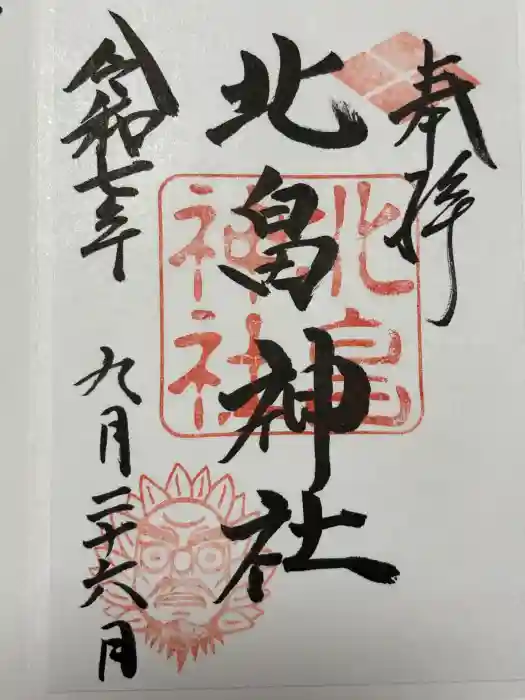 奉拝
北畠神社
北畠神社
令和七年
九月二十六月